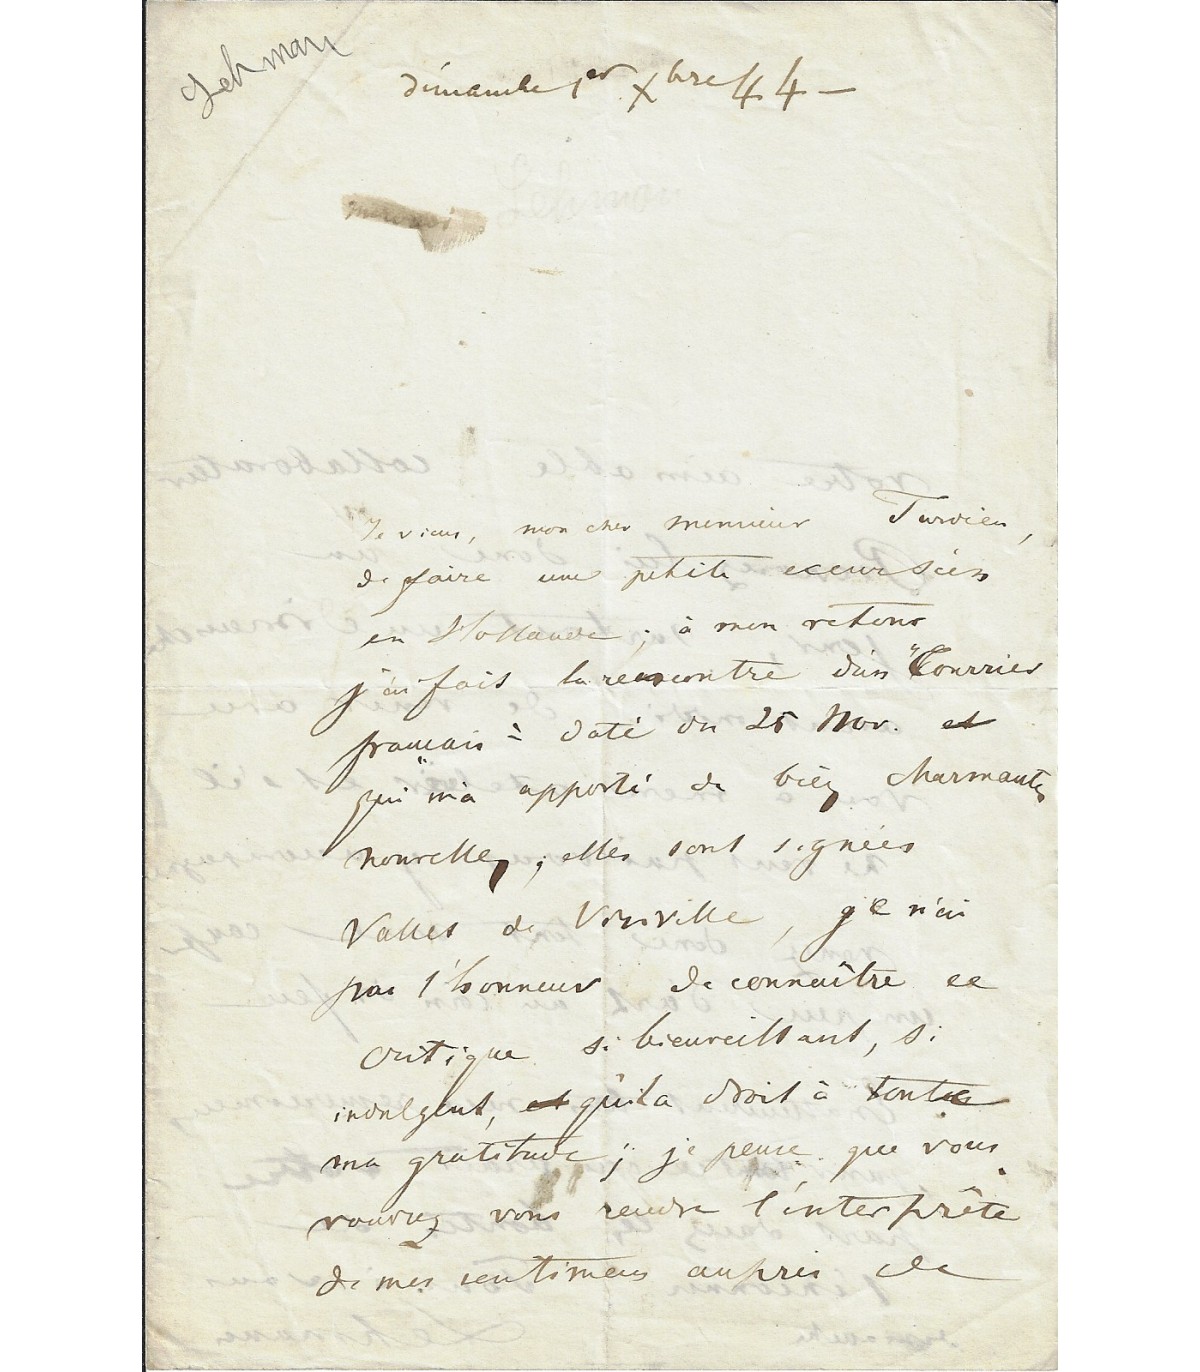 Lehman
dimanche 1er Xbre 44 —
Lehman
Je viens, mon cher monsieur
de faire une petite excursion
en Hollande ; à mon retour
j'ai fait la rencontre d'un "Courrier
français" daté du 25 Nov. et
qui m'a apporté de bien charmantes
nouvelles, elles sont signées
Vallet de Viriville, je n'ai
pas l'honneur de connaître ce
critique si bienveillant, si
indulgent, et qui a droit à toute
ma gratitude ; je pense que vous
voudrez vous rendre l'interprête
de mes sentimens auprès de